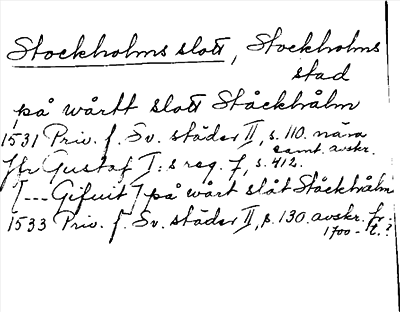 Stockholms slott, Stockholms
stad
på wårtt slott Ståckhålm
1531 Priv. f. Sv. städer II, s. 110. nära
samt. avskr.
Jfr Gustaf I:s reg. 7, s. 412.
[--- Gifuit] på wårt slåt Ståckhålm
1533 Priv. f. Sv. städer II, s. 130. avskr. fr.
1700-t.?